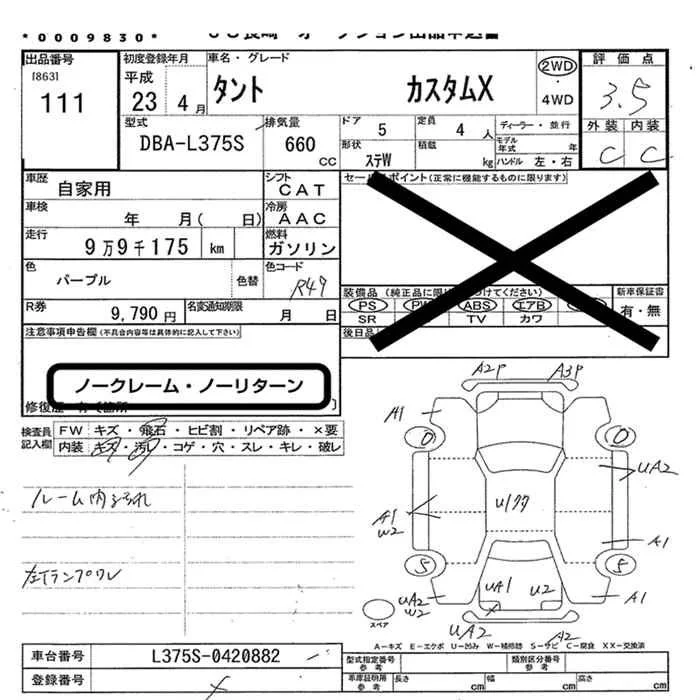 *0009830*
出品番号
[863]
111
初度登録年月
平成
23 4 月
車名・グレード
タント カスタムX
2WD
・
4WD
評価点
3.5
外装 内装
C C
型式
DBA-L375S
排気量
660 cc
ドア 5
定員 4 人
形状 ステW
積載 kg
ディーラー・並行
モデル年式 年
ハンドル 左・右
車歴 自家用
シフト CAT
車検 年 月( 日)
冷房 AAC
走行 9万9千175 km
燃料 ガソリン
色 パープル 色替
色コード R49
R券 9,790 円
名変通知期限 月 日
セールスポイント(正常に機能するものに限ります)
PS ABS エアB
SR TV カワ
新車保証書
有・無
後日品
注意事項申告欄(不具合内容等は具体的に記入して下さい)
ノークレーム・ノーリターン
検査員記入欄
FW キズ・飛石・ヒビ割・リペア跡・×要
内装 キズ・汚レ・コゲ・穴・スレ・キレ・破レ
A2P A3P
A1
0 0
UA2
A1
W2
Uリアタ
A1
S S
UA2
W2
UA1 U2
A1
UA2 A2
スペア
A-キズ E-エクボ U-凹み W-補修跡 S-サビ C-腐食 XX-交換済
車台番号 L375S-0420882
登録番号
型式指定番号 参考
類別区分番号 参考
車庫証明用 参考
長さ cm 幅 cm 高さ cm